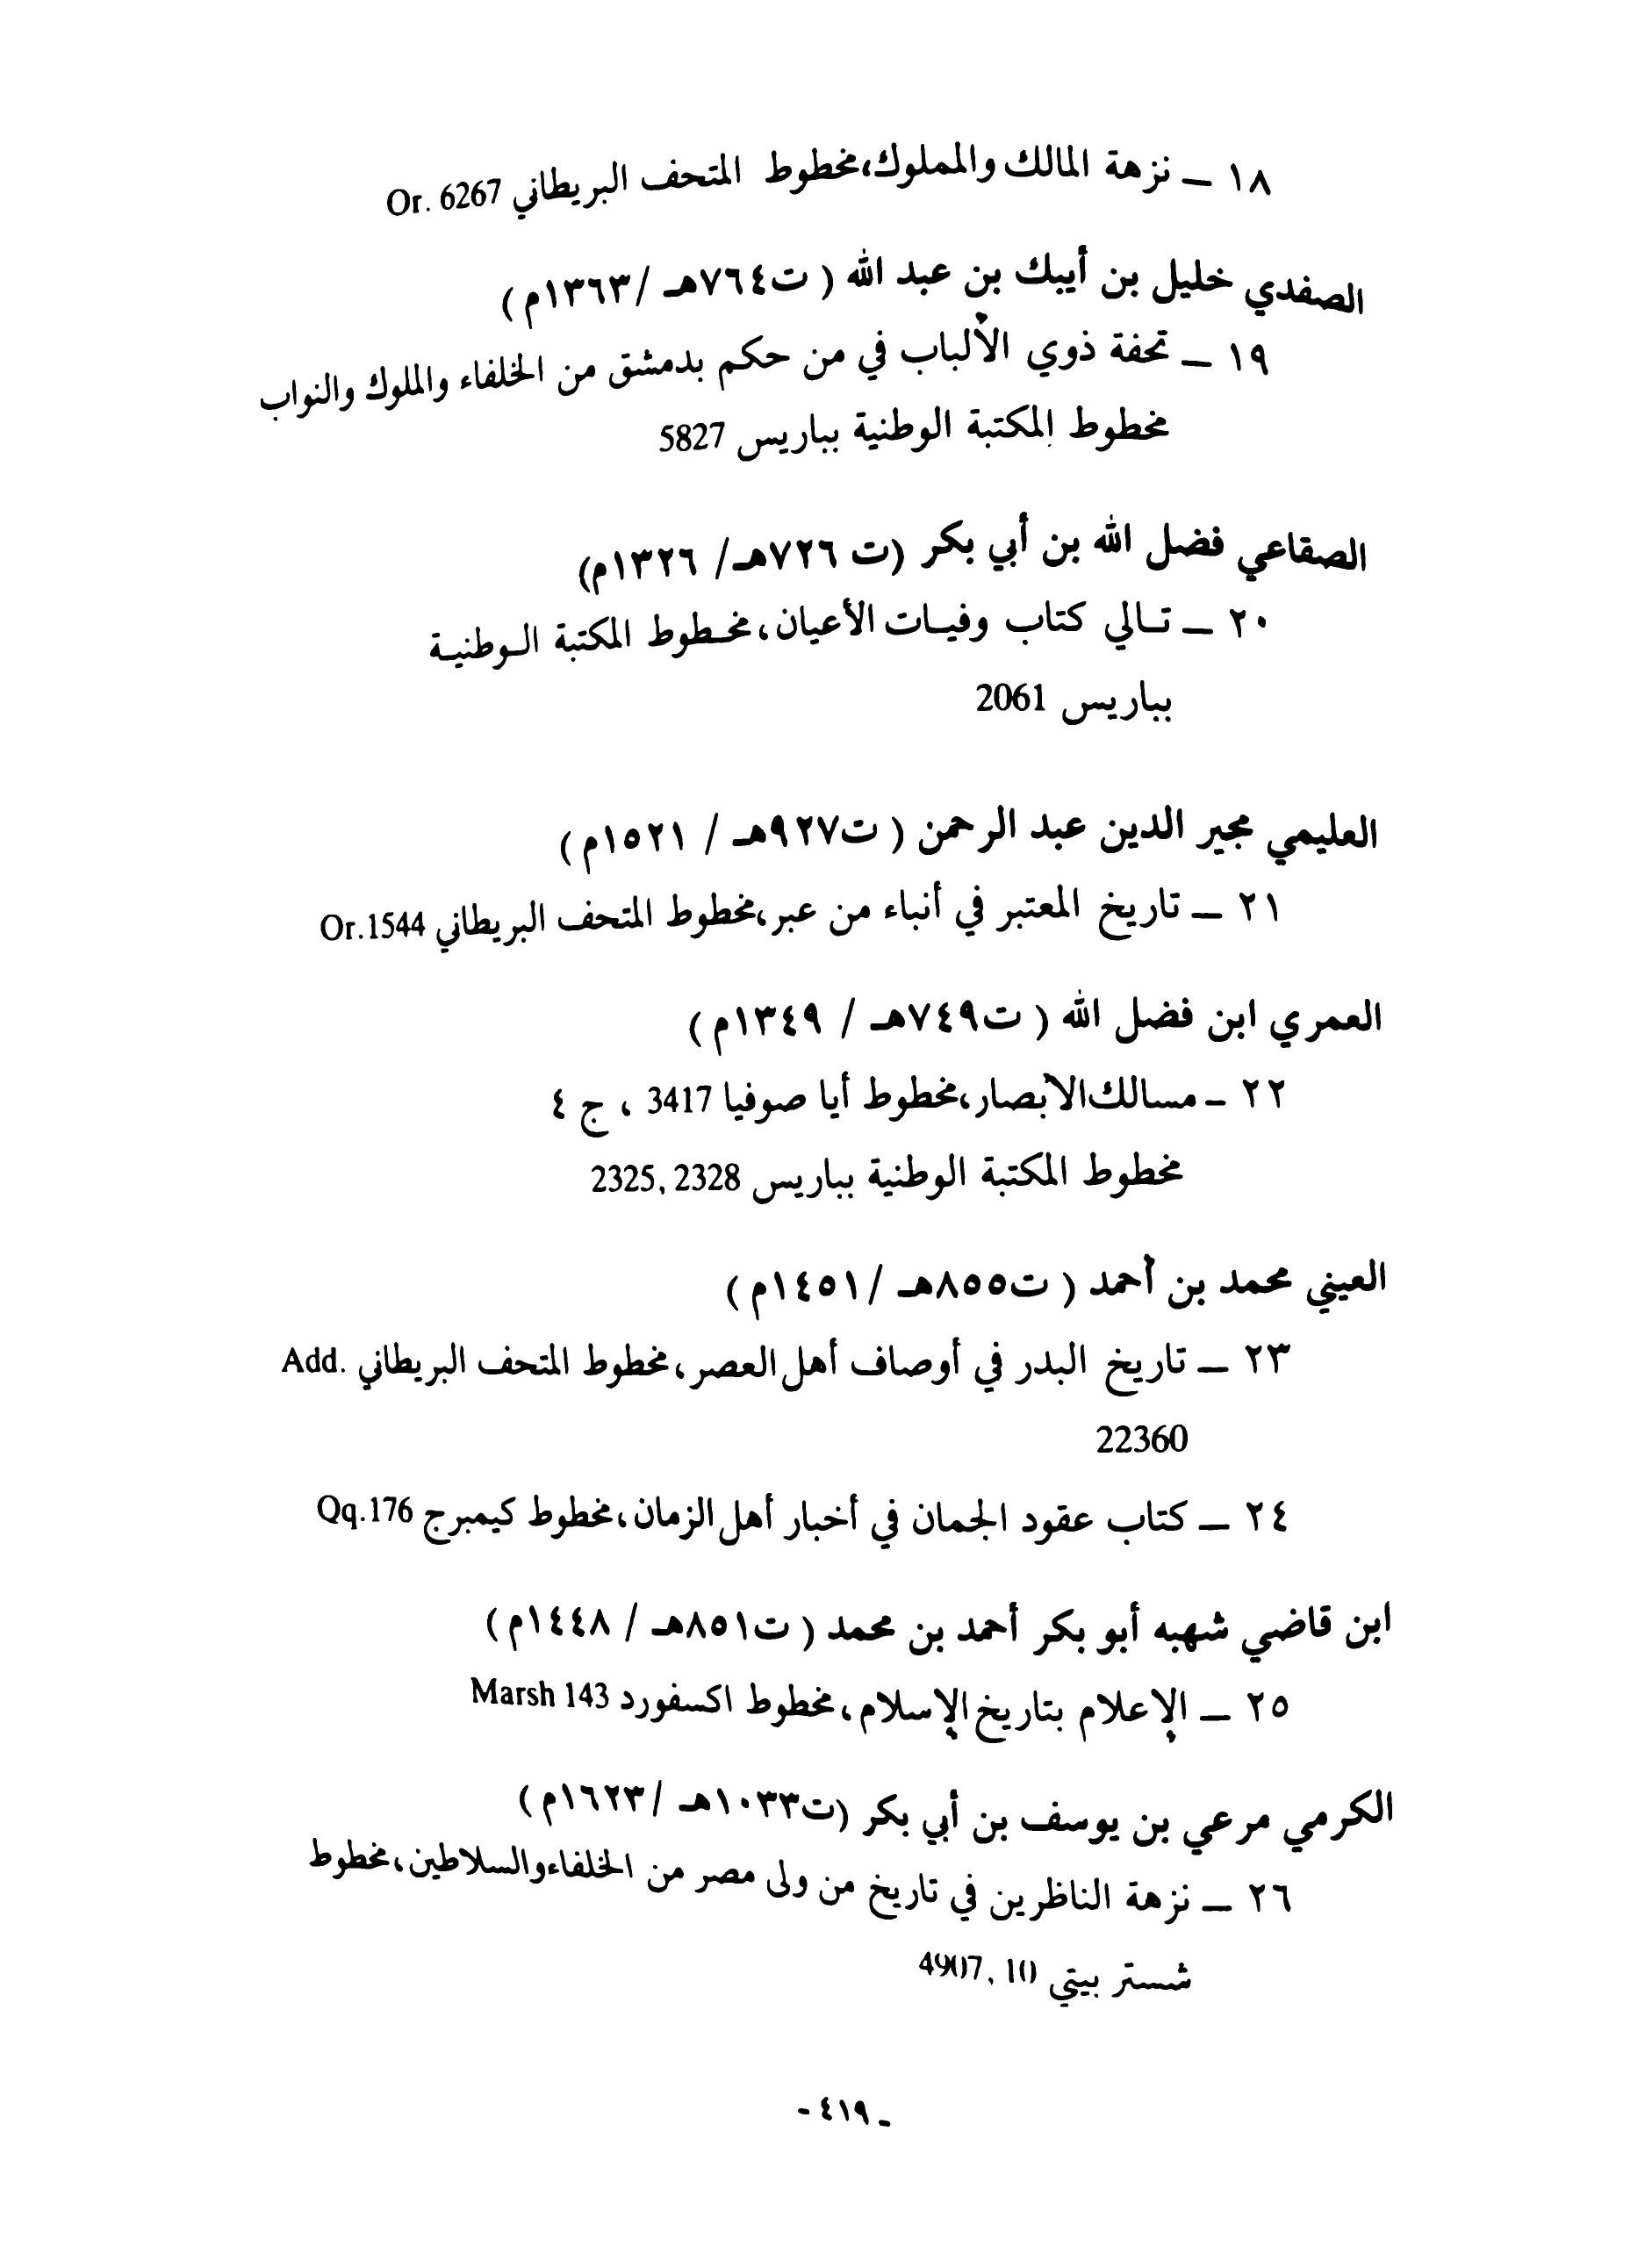 ١٨ ــ نزهة المالك والمملوك،مخطوط المتحف البريطاني Or. 6267
الصفدي خليل بن أيبك بن عبد الله ( ت٧٦٤هـ /١٣٦٣م )
١٩ ــ تحفة ذوي الألباب في من حكم بدمشق من الخلفاء والملوك والنواب
مخطوط المكتبة الوطنية بباريس 5827
الصقاعي فضل الله بن أبي بكر (ت ٧٢٦هـ/ ١٣٢٦م)
٢٠ ــ تـالي كتاب وفيـات الأعيان،مخـطوط المكتبة الـوطنيـة
بباريس 2061
العليمي مجير الدين عبد الرحمن ( ت٩٢٧هـ / ١٥٢١م )
٢١ ــ تاريخ المعتبر في أنباء من عبر،مخطوط المتحف البريطاني Or.1544
العمري ابن فضل الله ( ت٧٤٩هـ / ١٣٤٩م )
٢٢ ـ مسالك الأبصار،مخطوط أيا صوفيا 3417 ، ج ٤
مخطوط المكتبة الوطنية بباريس 2325, 2328
العيني محمد بن أحمد ( ت٨٥٥هـ /١٤٥١م )
٢٣ ــ تاريخ البدر في أوصاف أهل العصر،مخطوط المتحف البريطاني Add.
22360
٢٤ ــ كتاب عقود الجمان في أخبار أهل الزمان،مخطوط كيمبرج Qq.176
ابن قاضي شهبه أبو بكر أحمد بن محمد ( ت٨٥١هـ / ١٤٤٨م )
٢٥ ــ الإعلام بتاريخ الإسلام،مخطوط اكسفورد Marsh 143
الكرمي مرعي بن يوسف بن أبي بكر (ت١٠٣٣هـ /١٦٢٣م )
٢٦ ــ نزهة الناظرين في تاريخ من ولى مصر من الخلفاء والسلاطين،مخطوط
شستر بيتي 4907, 10
ـ ٤١٩ ـ